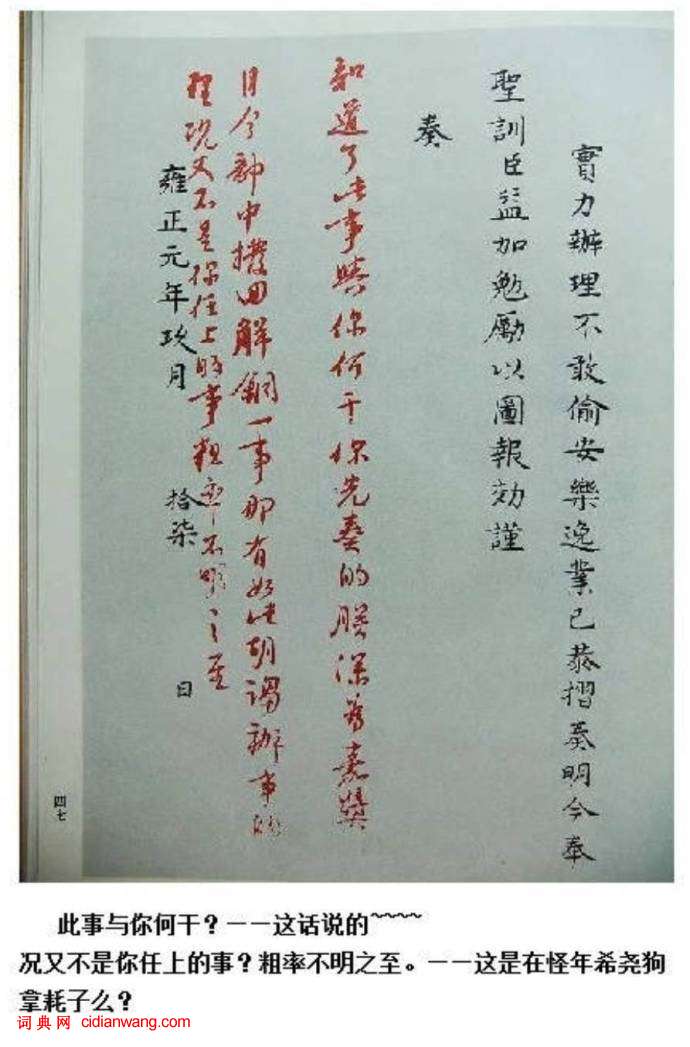 實力辦理不敢偷安樂逸業已恭摺奏明今奉
聖訓臣益加勉勵以圖報効謹
奏
知道了此事與你何干你先奏的朕深為嘉獎
目今部中撥回解銅一事那有如此胡謅辦事的
理况又不是你任上的事粗率不明之至
雍正元年玖月 拾柒 日
四七
此事与你何干？－－这话说的~~~~
况又不是你任上的事？粗率不明之至。－－这是在怪年希尧狗
拿耗子么？
词典网 cidianwang.com